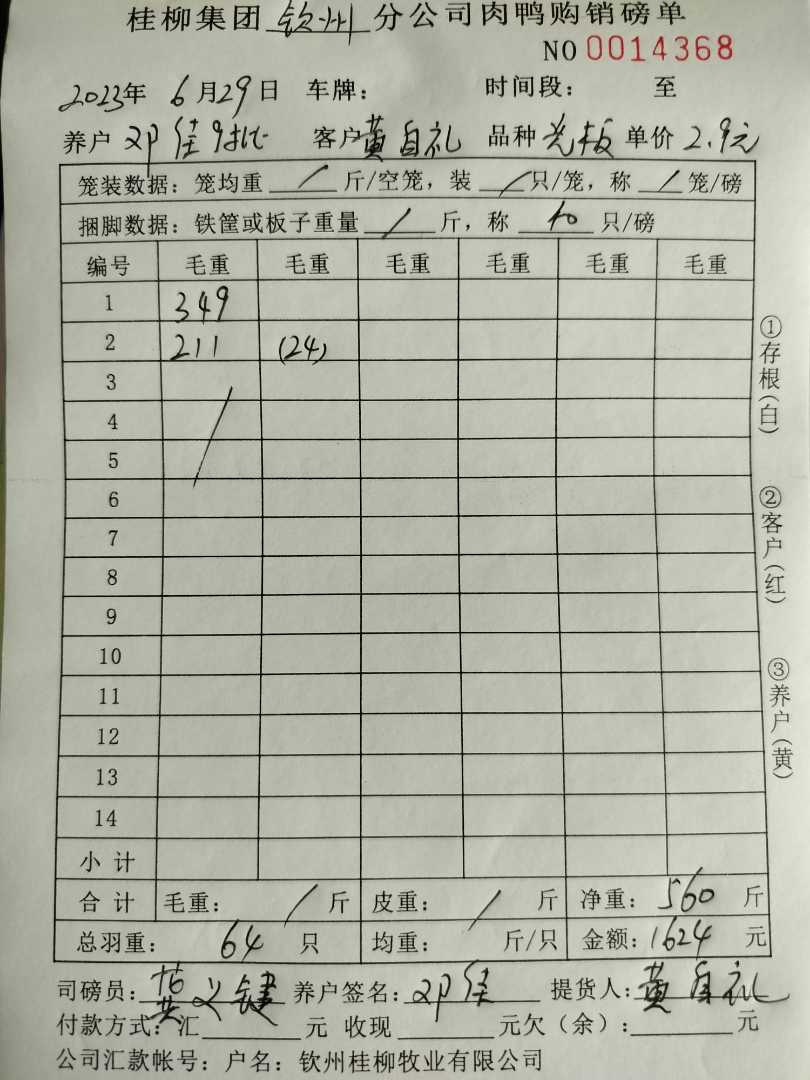 桂柳集团 钦州 分公司肉鸭购销磅单
NO 0014368
2023年 6月29日 车牌： 时间段： 至
养户 邓佳 客户 黄自礼 品种 芝板 单价 2.9元
笼装数据：笼均重 / 斤/空笼，装 / 只/笼，称 / 笼/磅
捆脚数据：铁筐或板子重量 / 斤，称 40 只/磅
编号 毛重 毛重 毛重 毛重 毛重 毛重
1 349
2 211 (24)
3
4
5
6
7
8
9
10
11
12
13
14
小计
合计 毛重： / 斤 皮重： / 斤 净重： 560 斤
总羽重： 64 只 均重： 斤/只 金额：1624 元
司磅员： 养户签名：邓佳 提货人：黄自礼
付款方式：汇 元 收现 元欠（余）： 元
公司汇款帐号：户名：钦州桂柳牧业有限公司
①存根（白）
②客户（红）
③养户（黄）